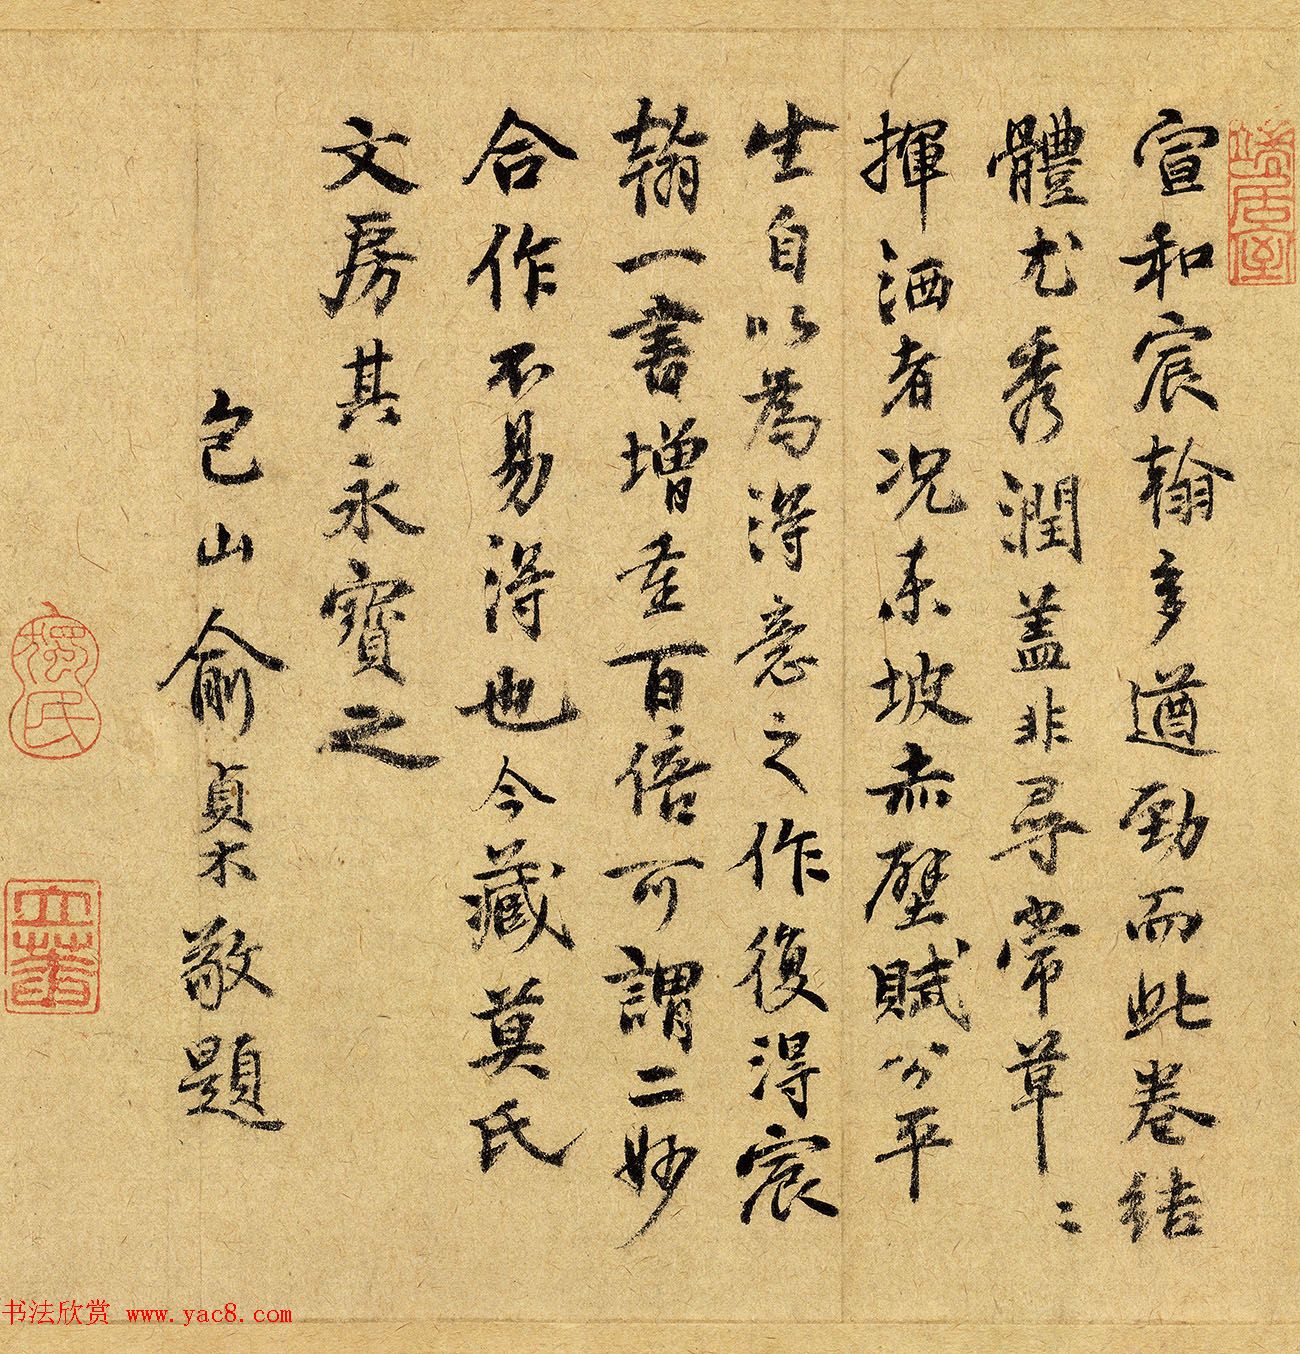 宣和宸翰多遒勁而此卷結
體尤秀潤盖非尋常草〻
揮洒者况東坡赤壁賦公平
生自以為得意之作復得宸
翰一書增重百倍可謂二妙
合作不易得也今藏莫氏
文房其永寶之
包山俞貞木敬題
書法欣赏 www.yac8.com